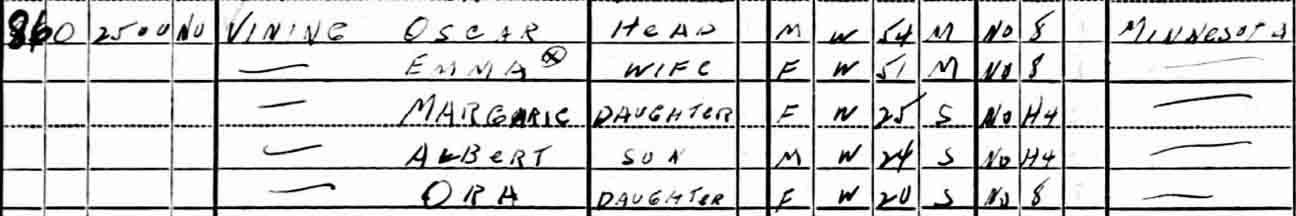 86 O 2500 NO VINING OSCAR HEAD M W 54 M NO 8 MINNESOTA
— EMMA ⊗ WIFE F W 51 M NO 8 —
— MARGARIE DAUGHTER F W 25 S NO H4 —
— ALBERT SON M W 24 S NO H4 —
— ORA DAUGHTER F W 20 S NO 8 —